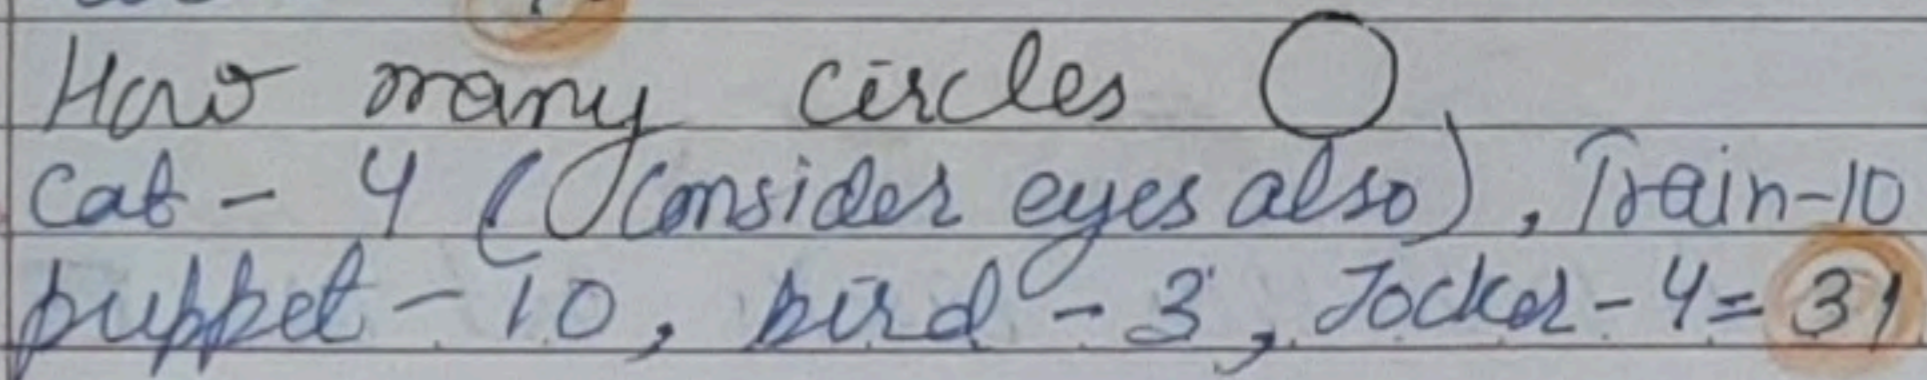 How many circles ◯
Cat - 4 (Consider eyes also), Train-10
puppet - 10, bird - 3, Jocker - 4 = 31